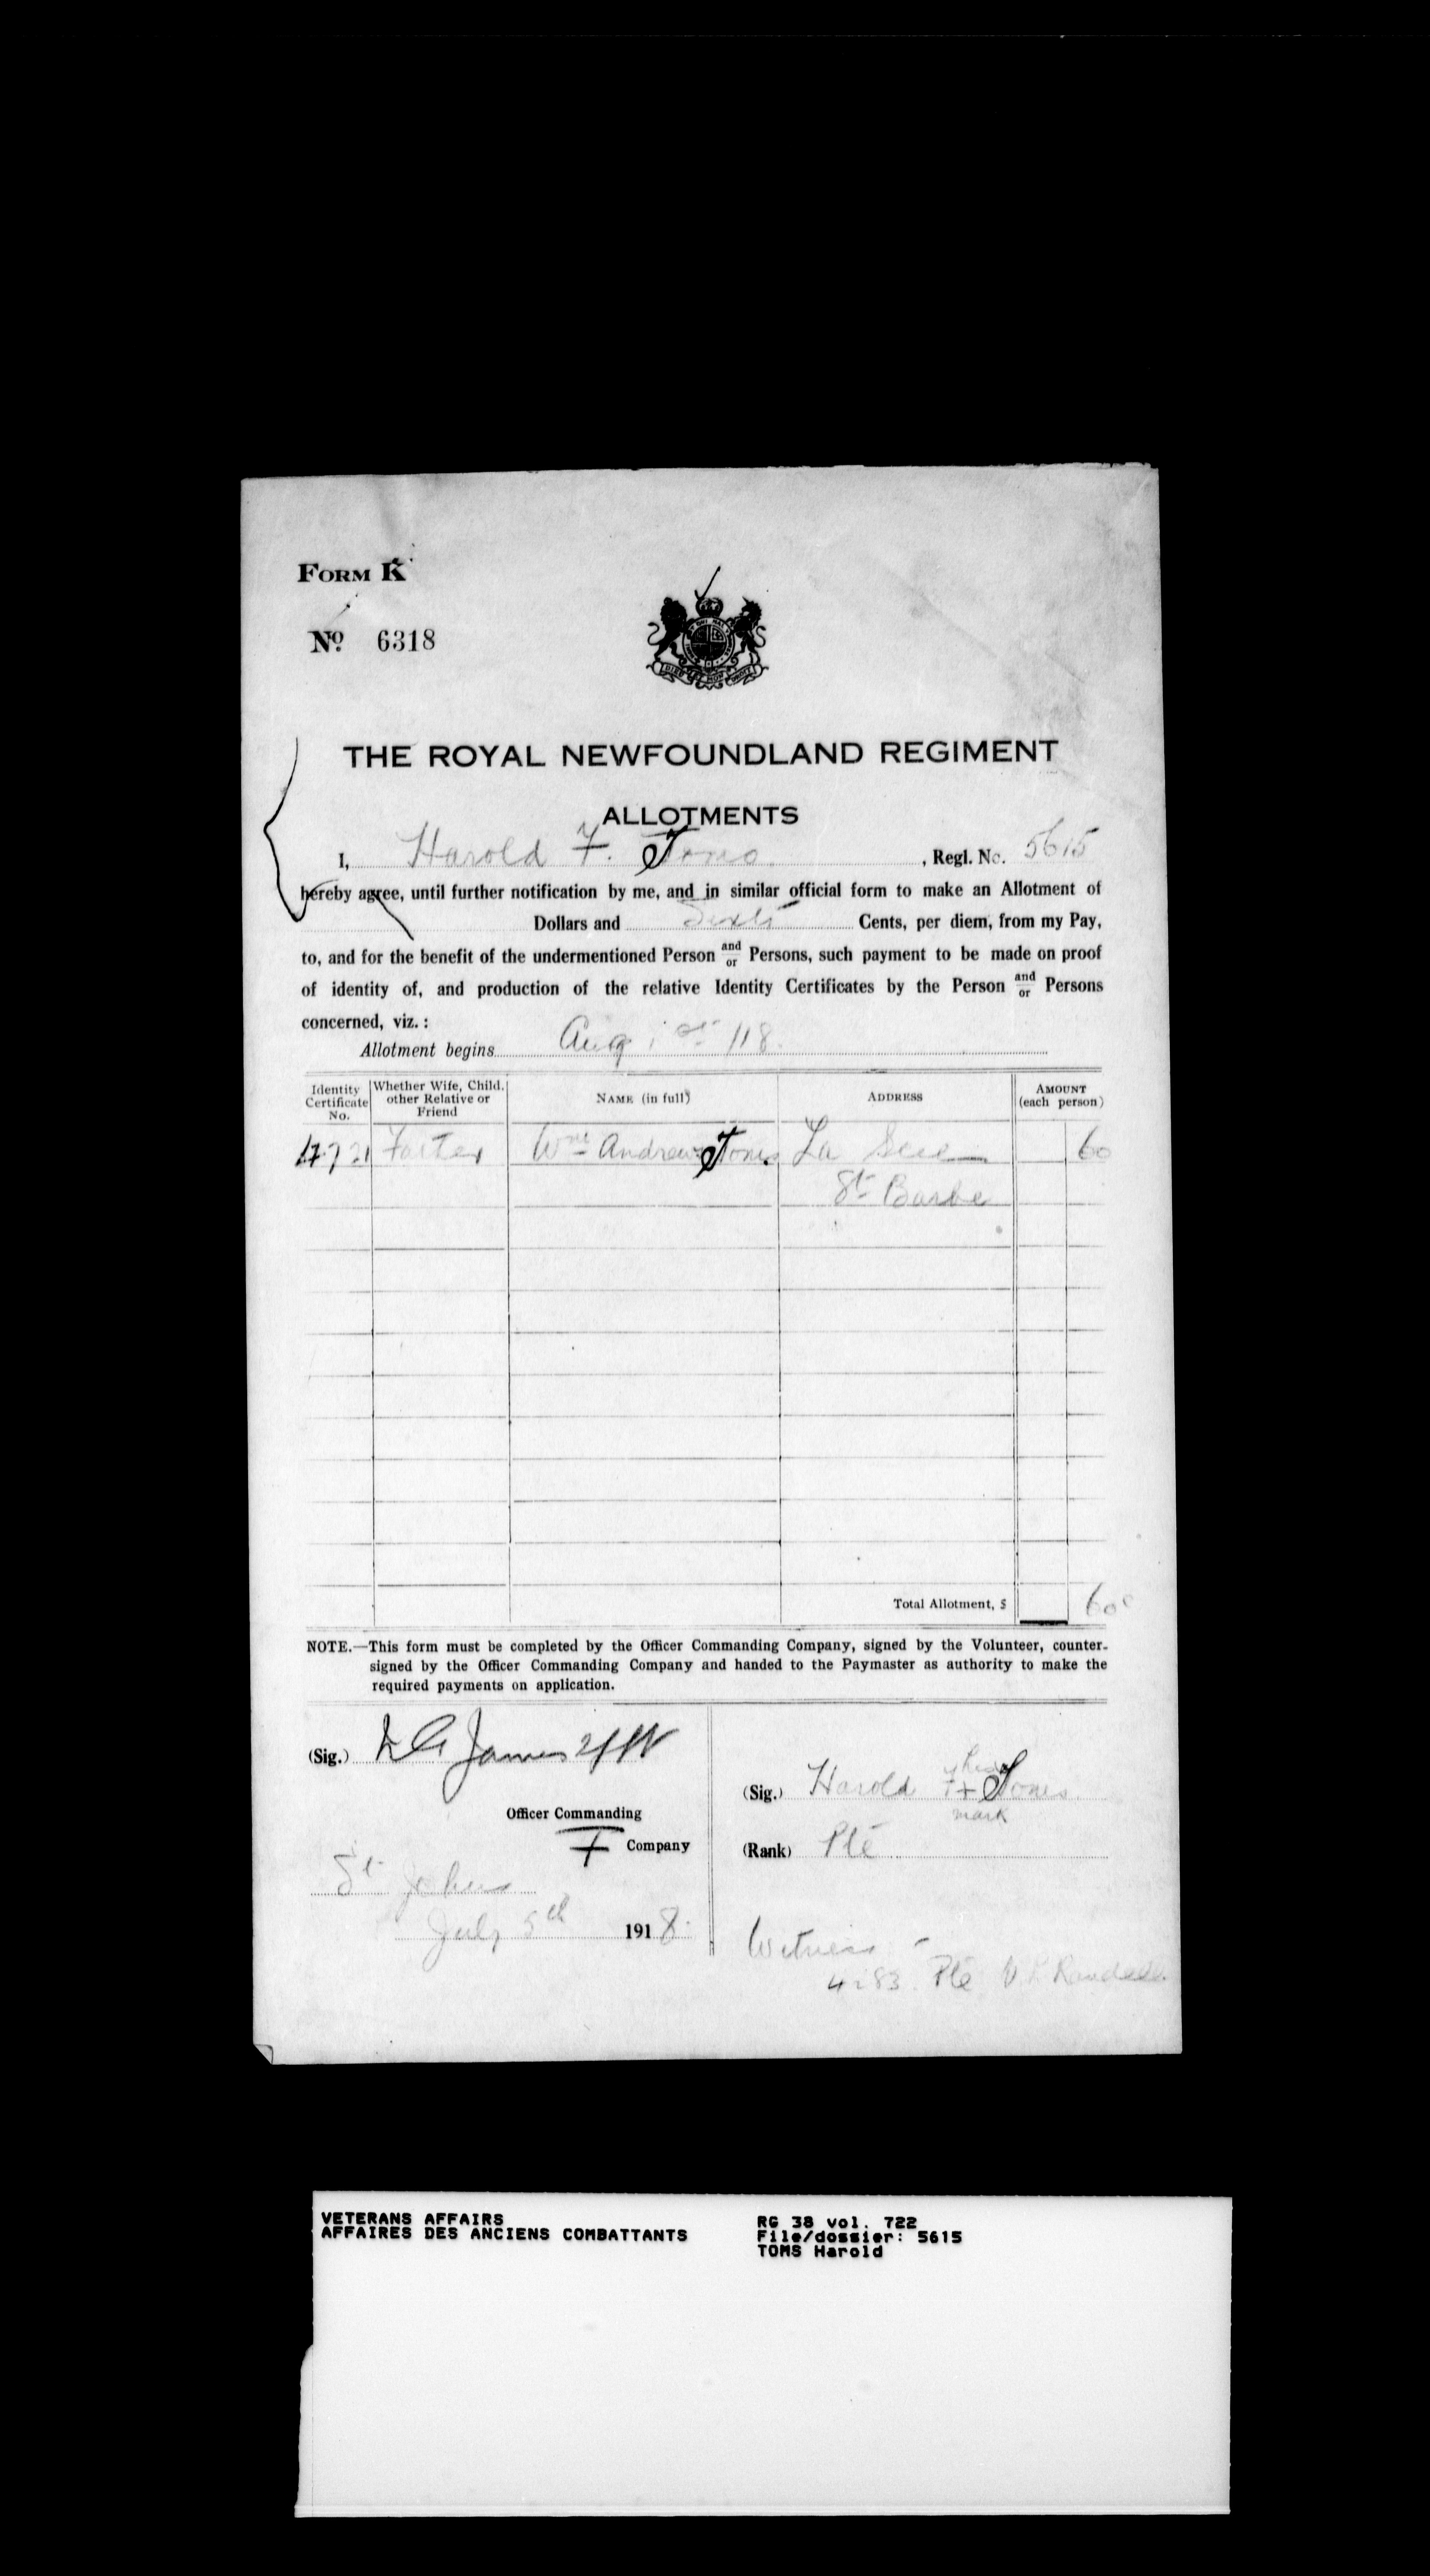 FORM K
No. 6318
THE ROYAL NEWFOUNDLAND REGIMENT
ALLOTMENTS
I, Harold F. Toms, Regl. No. 5615
hereby agree, until further notification by me, and in similar official form to make an Allotment of
Dollars and Sixty Cents, per diem, from my Pay,
to, and for the benefit of the undermentioned Person and/or Persons, such payment to be made on proof
of identity of, and production of the relative Identity Certificates by the Person and/or Persons
concerned, viz.:
Allotment begins Aug 1st /18.
Identity Certificate No. Whether Wife, Child, other Relative or Friend NAME (in full) ADDRESS AMOUNT (each person)
4721 Father Wm Andrew Toms La Scie 60
St Barbe
Total Allotment, $ 60c
NOTE.—This form must be completed by the Officer Commanding Company, signed by the Volunteer, counter-
signed by the Officer Commanding Company and handed to the Paymaster as authority to make the
required payments on application.
(Sig.) James 2/Lt
Officer Commanding
F Company
St Johns
July 5th 1918.
(Sig.) Harold F. his + mark Toms
(Rank) Pte
Witness -
4283. Pte Randell.
VETERANS AFFAIRS
AFFAIRES DES ANCIENS COMBATTANTS
RG 38 vol. 722
File/dossier: 5615
TOMS Harold